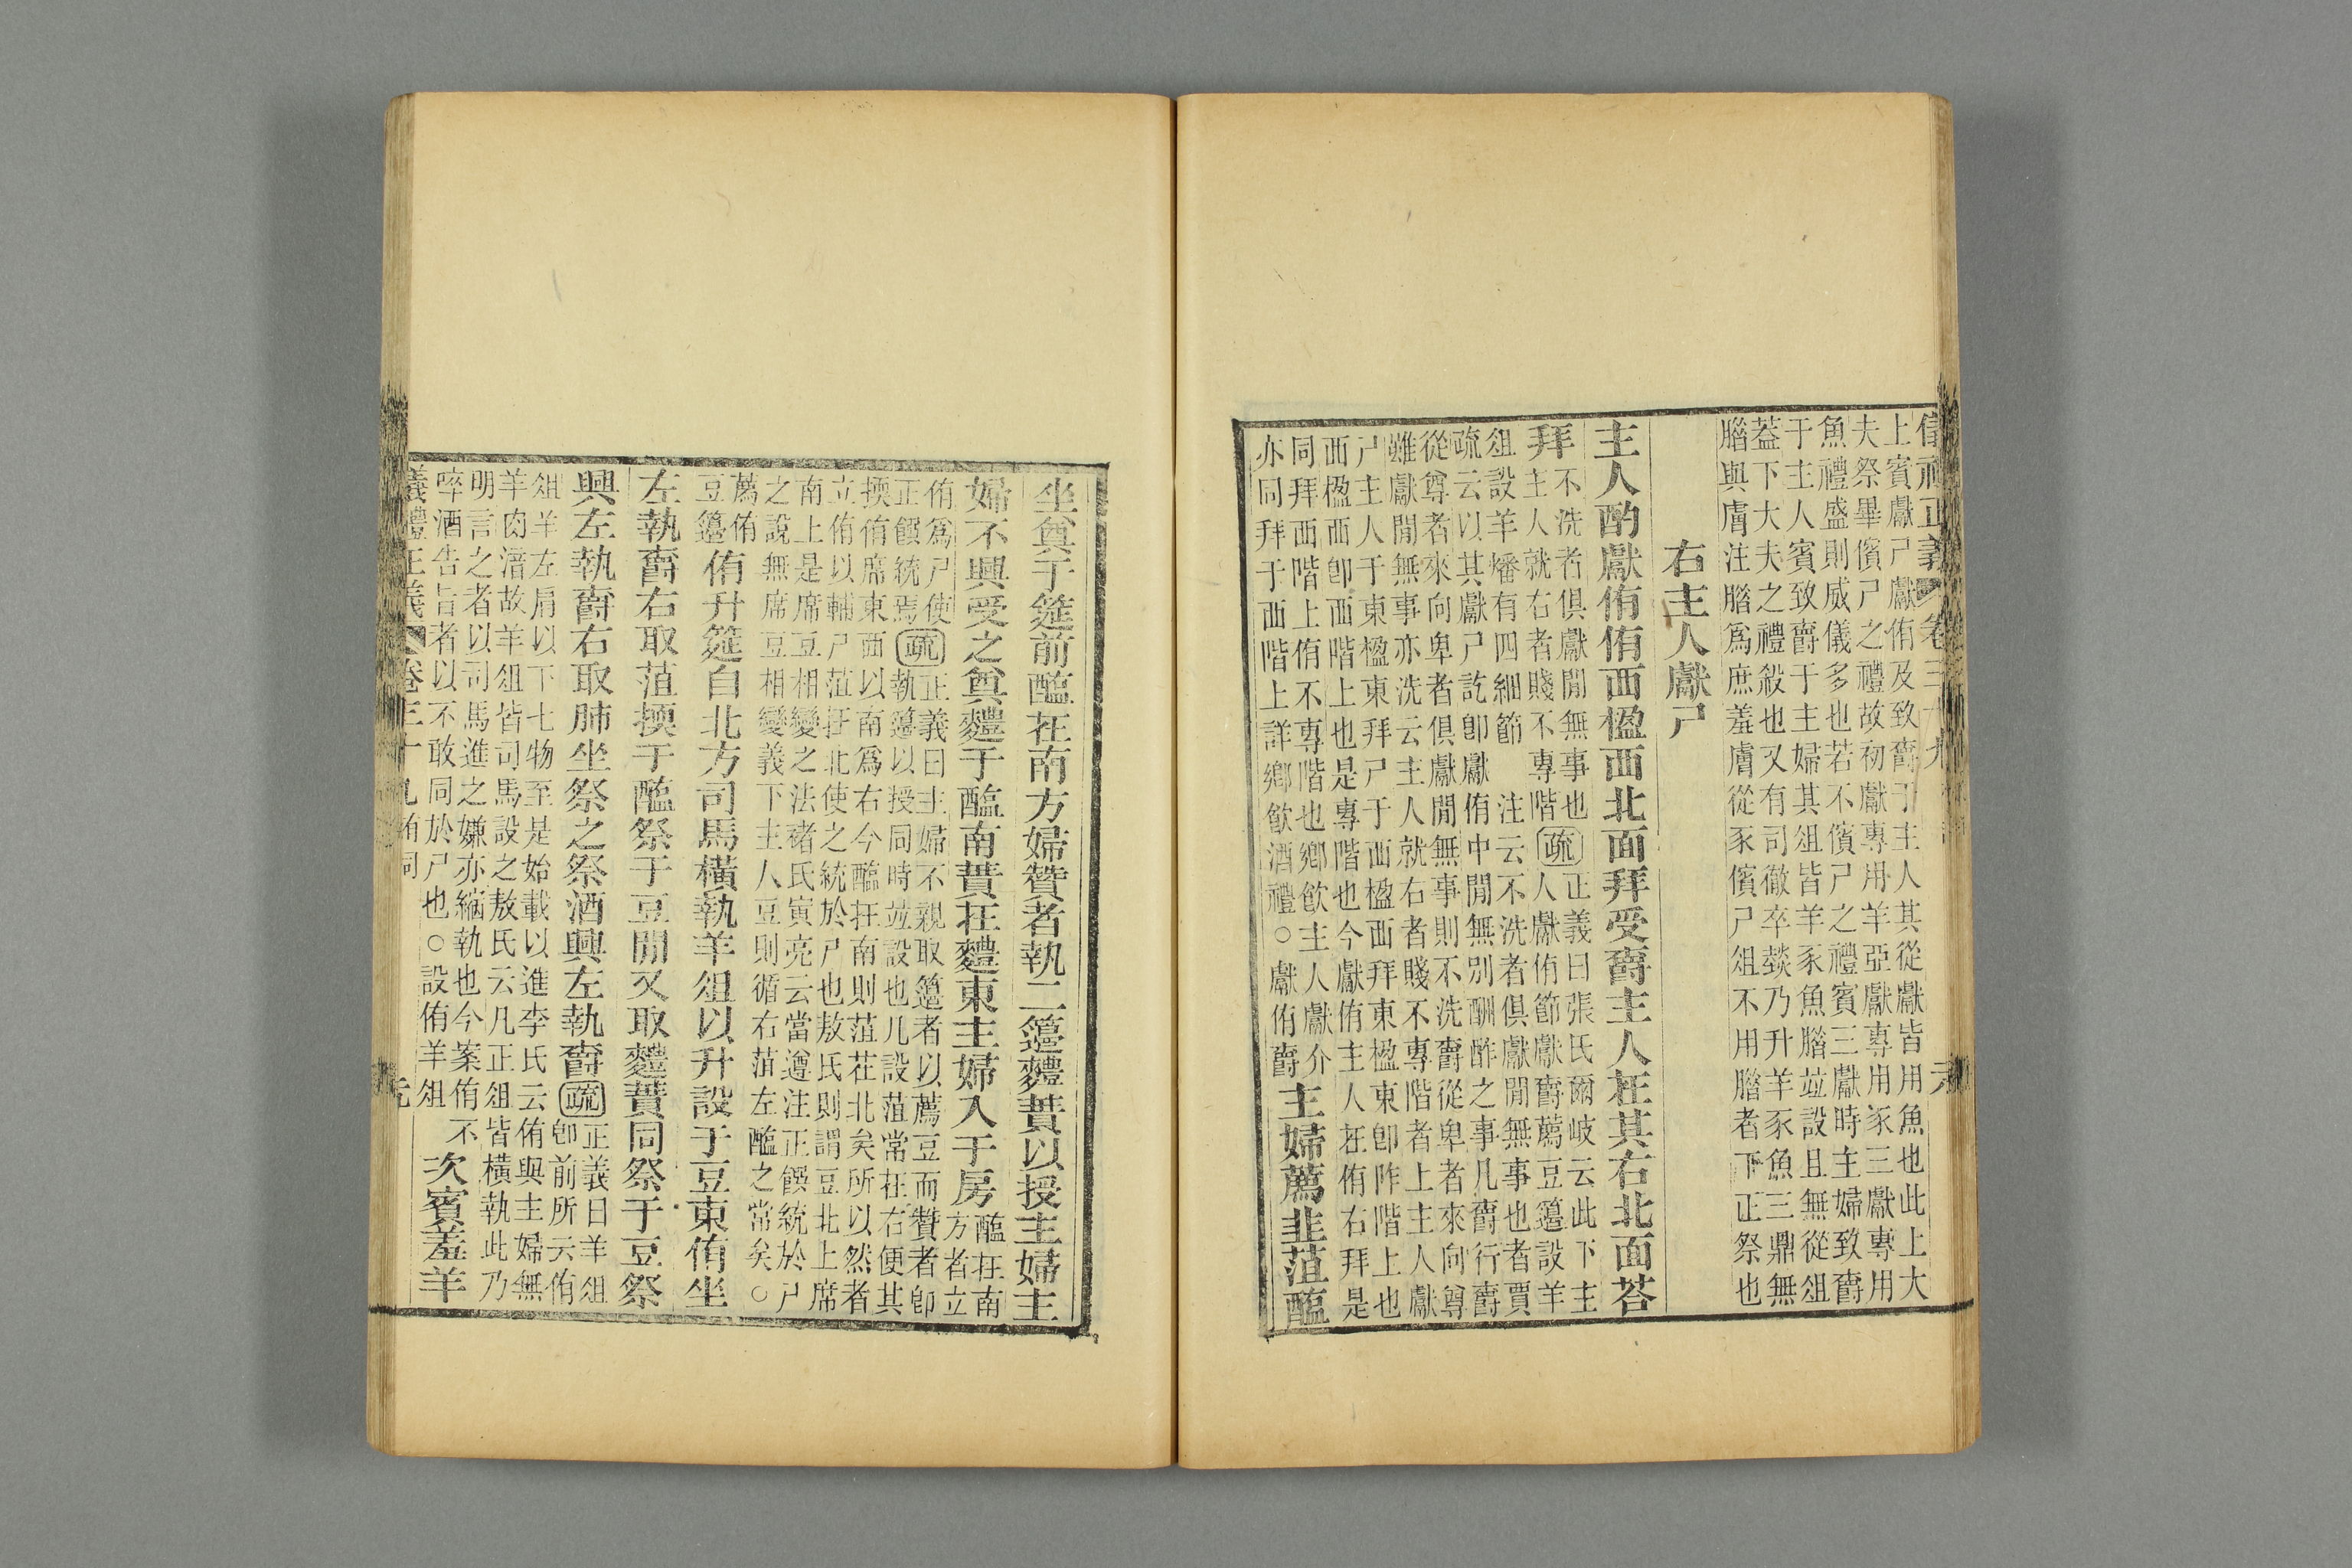 上賓獻尸獻侑及致爵于主人其從獻皆用魚也此上大
夫祭畢儐尸之禮故初獻專用羊亞獻專用豕三獻專用
魚禮盛則威儀多也若不儐尸之禮賓三獻時主婦致爵
于主人賓致爵于主婦其俎皆羊豕魚膱竝設且無從俎
葢下大夫之禮殺也又有司徹卒燅乃升羊豕魚三鼎無
腊與膚注腊爲庶羞膚從豕儐尸俎不用腊者下正祭也
右主人獻尸
主人酌獻侑侑西楹西北面拜受爵主人在其右北面荅
拜
不洗者俱獻閒無事也
主人就右者賤不專階
疏
正義曰張氏爾岐云此下主
人獻侑節獻爵薦豆籩設羊
俎設羊燔有四細節　注云不洗者俱獻閒無事也者賈
疏云以其獻尸訖卽獻侑中閒無別酬酢之事凡爵行爵
從尊者來向卑者俱獻閒無事則不洗爵從卑者來向尊
雖獻閒無事亦洗云主人就右者賤不專階者上主人獻
尸主人于東楹東拜尸于西楹西拜東楹東卽阼階上也
西楹西卽西階上也是專階也今獻侑主人在侑右拜是
同拜西階上侑不專階也鄉飲主人獻介
亦同拜于西階上詳鄉飲酒禮○獻侑爵
主婦薦韭菹醢
坐奠于筵前醢在南方婦贊者執二籩麷蕡以授主婦主
婦不興受之奠麷于醢南蕡在麷東主婦入于房
醢在南
方者立
侑爲尸使
正饌統焉
疏
正義曰主婦不親取籩者以薦豆而贊者卽
執籩以授同時竝設也凡設菹常在右便其
換侑席東西以南爲右今醢在南則菹在北矣所以然者
立侑以輔尸菹在北使之統於尸也敖氏則謂豆北上席
南上是席豆相變之法褚氏寅亮云當遵注正饌統於尸
之說無席豆相變義下主人豆則循右菹左醢之常矣○
薦侑
豆籩
侑升筵自北方司馬橫執羊俎以升設于豆東侑坐
左執爵右取菹擩于醢祭于豆閒又取麷蕡同祭于豆祭
興左執爵右取肺坐祭之祭酒興左執爵
疏
正義曰羊俎
卽前所云侑
俎羊左肩以下七物至是始載以進李氏云侑與主婦無
羊肉湆故羊俎皆司馬設之敖氏云凡正俎皆橫執此乃
明言之者以司馬進之嫌亦縮執也今案侑不
啐酒告旨者以不敢同於尸也○設侑羊俎
次賓羞羊